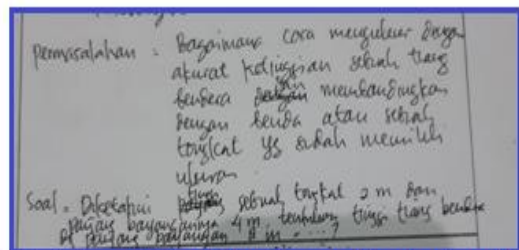 permasalahan : Bagaimana cara mengukur dengan
akurat ketinggian sebuah tiang
bendera dengan membandingkan
dengan benda atau sebuah
tongkat yg sudah memiliki
ukuran
Soal = Diketahui tinggi sebuah tongkat 2 m dan
panjang bayangannya 4 m, tentukan tinggi tiang bendera
panjang bayangan 8 m = ...?